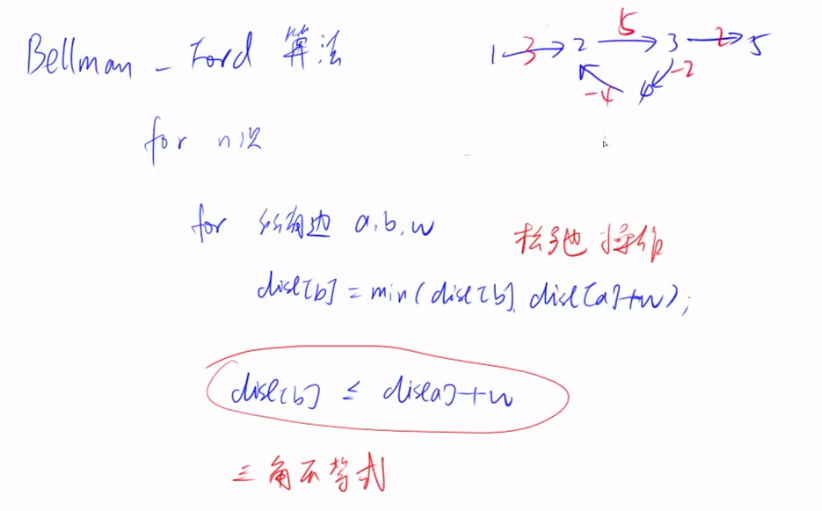 Bellman - Ford 算法
1 3 2 5 3 2 5
-4 4 -2
for n次
for 所有边 a,b,w
松弛操作
dist[b] = min(dist[b], dist[a]+w);
dist[b] ≤ dist[a]+w
三角不等式